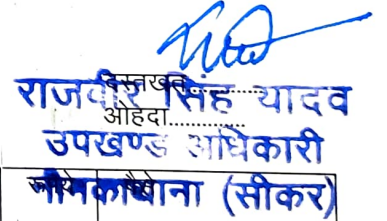 दस्तखत............
राजवीर सिंह यादव
ओहदा............
उपखण्ड अधिकारी
नीमकाथाना (सीकर)